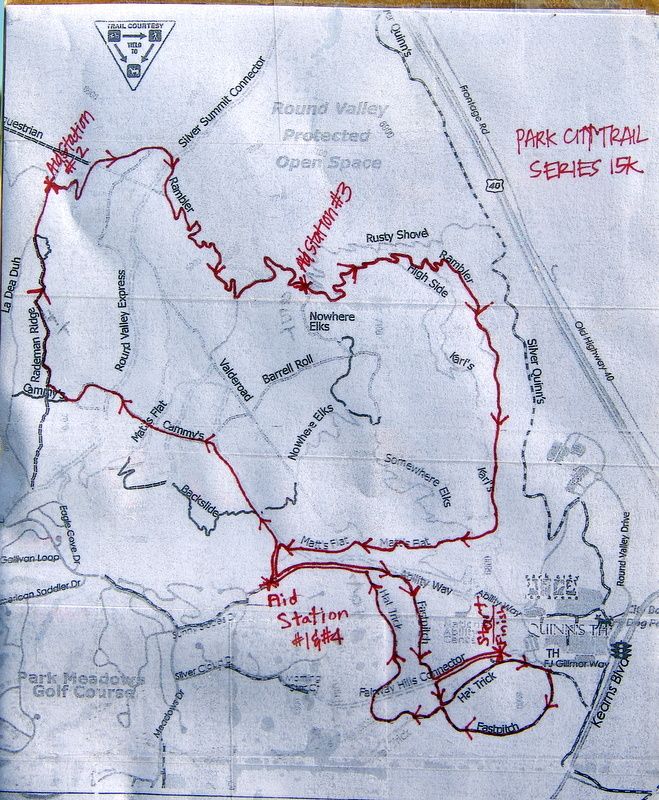 TRAIL COURTESY
YIELD
TO
Quinn's
Frontage Rd
Silver Summit Connector
Round Valley
Protected
Open Space
PARK CITY TRAIL
SERIES 15K
40
Aid Station
#2
Rambler
Aid Station #3
Rusty Shovel
High Side
Rambler
La Dea Duh
Rademan Ridge
Round Valley Express
Nowhere
Elks
Karl's
Old Highway 40
Silver Quinn's
Valderoad
Barrell Roll
Cammy's
Matt's Flat
Cammy's
Nowhere Elks
Somewhere Elks
Karl's
Backslide
Eagle Cove Dr
Matt's Flat
Matt's Flat
Round Valley Drive
Gallivan Loop
American Saddler Dr
Ability Way
Ability Way
Aid
Station
#1&#4
Hat Trick
Fastpitch
Start
Finish
QUINN'S TH
TH
FJ Gillmor Way
Silver Cloud
Fairway Hills Connector
Hat Trick
Park Meadows
Golf Course
Meadows Dr
Fastpitch
Kearns Blvd